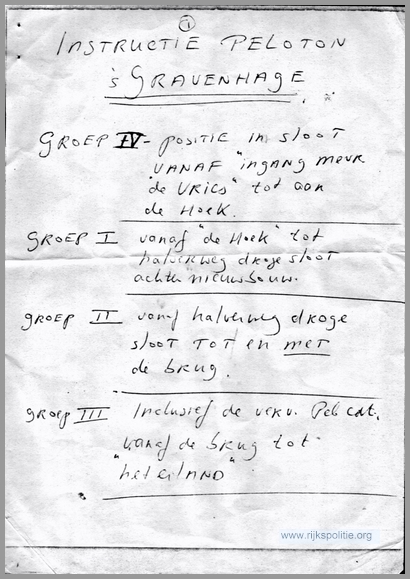 ①
INSTRUCTIE PELOTON
'S GRAVENHAGE
GROEP IV - POSITIE in sloot
VANAF "ingang meur
de VRIES" tot aan
de HOEK.
GROEP I vanaf "de Hoek" tot
halverweg droge sloot
achter nieuwbouw.
GROEP II vanaf halverweg droge
sloot TOT en met
de brug.
groep III Inclusief de verv. Pel cdt.
vanaf de brug tot
"het eiland"
www.rijkspolitie.org